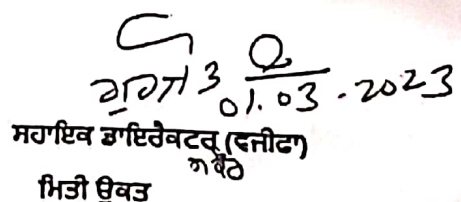 01.03.2023
ਸਹਾਇਕ ਡਾਇਰੈਕਟਰ (ਵਜੀਫਾ)
ਮਿਤੀ ਉਕਤ